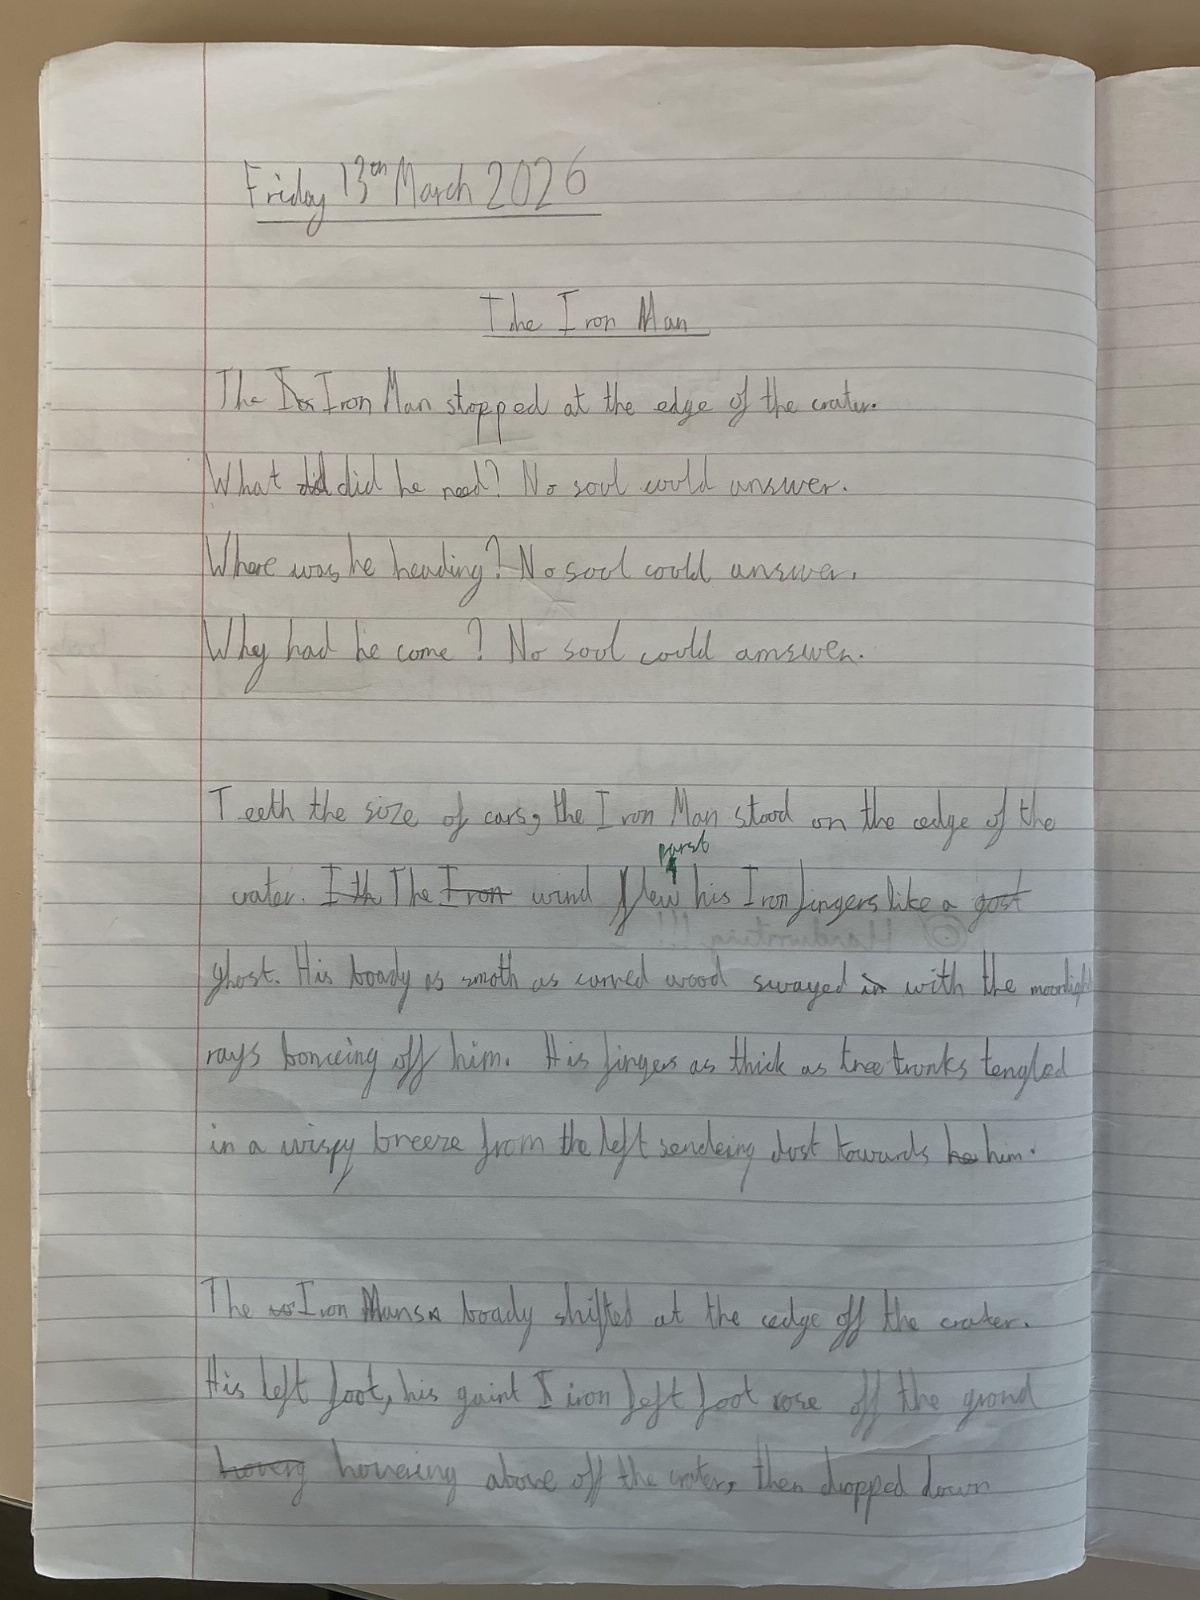 Friday 13th March 2026
The Iron Man
The Iron Man stopped at the edge of the crater.
What did he need? No soul could answer.
Where was he heading? No soul could answer.
Why had he come? No soul could amswer.
Teeth the size of cars, the Iron Man stood on the edge of the
parst
crater. The wind flew his Iron fingers like a
ghost. His boady as smoth as curved wood swayed with the moonlight
rays bonceing off him. His fingers as thick as tree trunks tengled
in a wispy breeze from the left sendeing dust towards him.
The Iron Mans boady shifted at the edge off the crater.
His left foot, his gaint iron left foot rose off the grond
hovering above off the crater, then dropped down